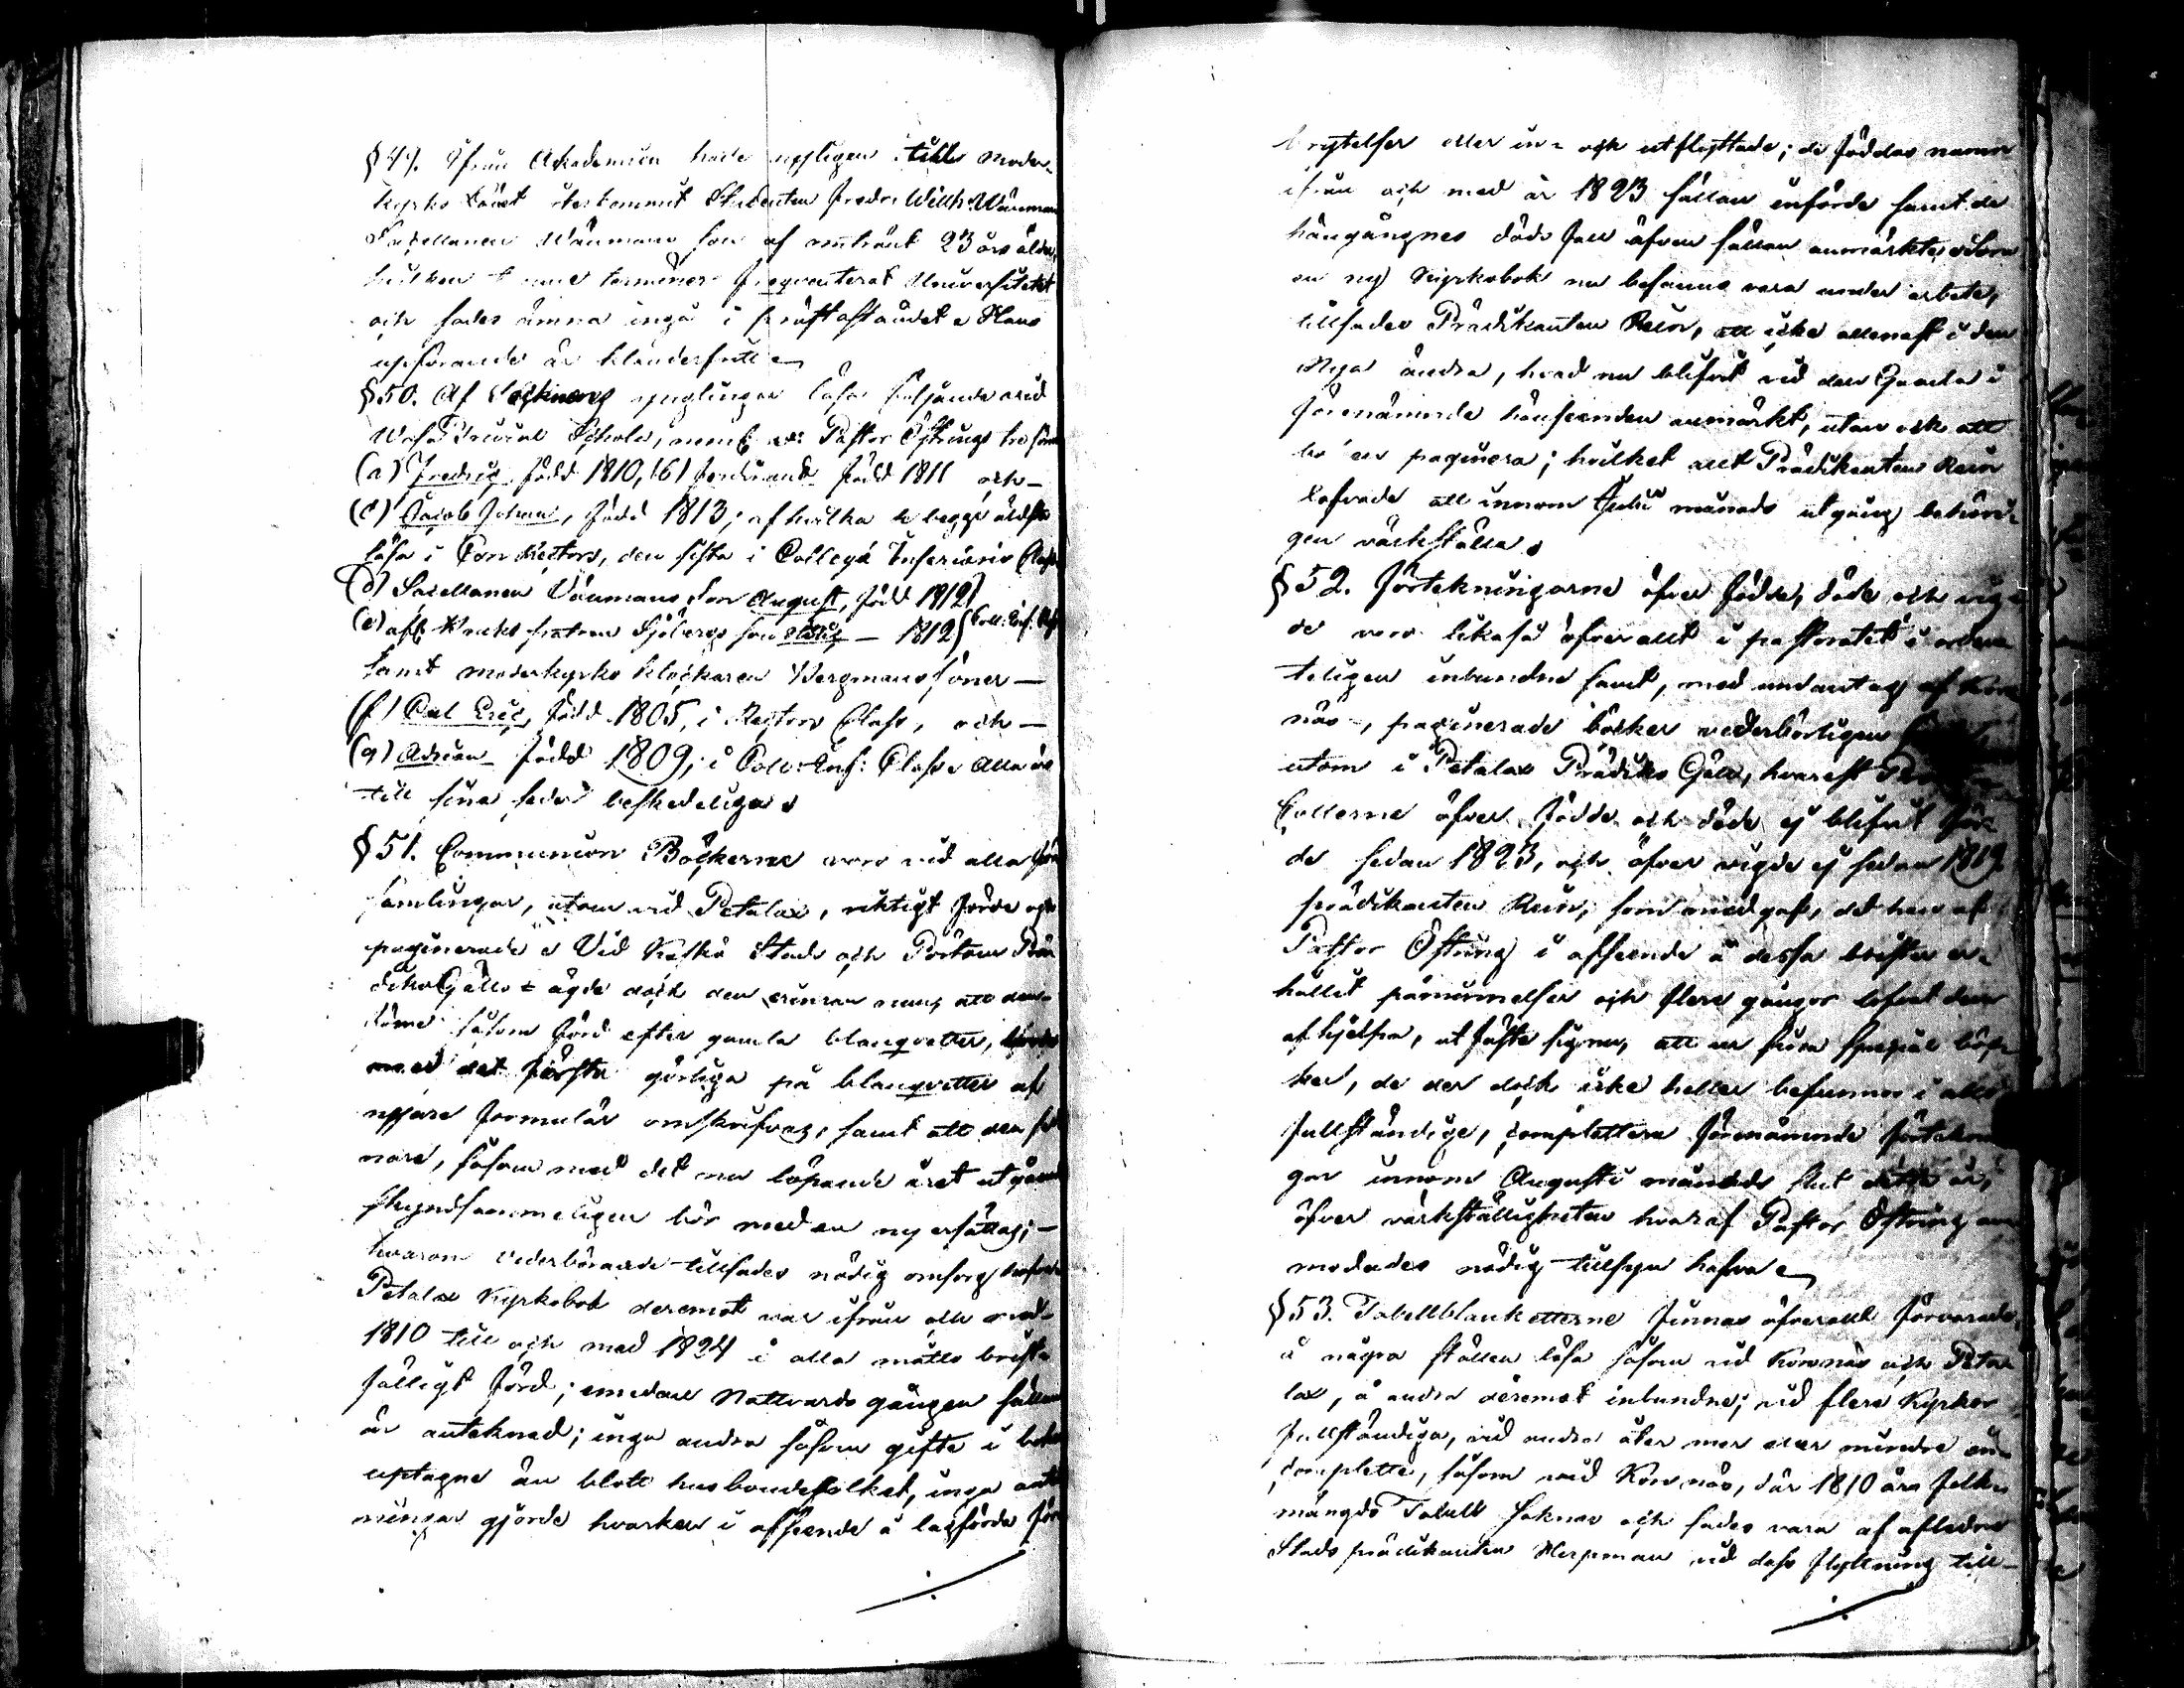 § 49. Ifrån Academien hade nyligen till Moder-
kyrko återkommit Studenten Fredr: Wilh: Wänman
Sacellanen Wänmans son af omtrent 23 års ålder,
hvilken terminer frequenterat Universitetet
och sades ämna ingå i Hans
uppförande är klanderfritt
§ 50. Af ynglingar läsa följande vid
Wasa Trivial Schola, neml: Pastor Östrings tre söner
(a) Fredric född 1810, (b) Ferdinand född 1811 och
(c) Jacob Johan, född 1813; af hvilka de begge äldste
läsa i Con Rectors, den sista i Collega Inferioris Class
(d) Sacellanen Wänmans Son August, född 1812
(e) Sjöbergs son — 1812 Coll: Inf: Class
samt moderkyrko klockaren Bergmans söner —
(f) Carl Eric, född 1805, i Rectors Class, och —
(g) Adrian född 1809, i Coll: Inf: Class. Alla äro
till sina seder beskedeliga
§ 51. Communion Böckerne voro vid alla för-
samlingar, utom vid Petalax, riktigt förde och
paginerade. Vid Kaskö Stads och Pörtom Prä-
diko Gälls ägde dock den erinran rum, att den
såsom förd efter gamla blanqvetter,
med det första görliga på blanqvetter af
nyare formulär omskrifvas, samt att den sed-
nare, såsom med det nu löpande året utgående
skyndsammeligen bör med en ny ersättas; —
hvarom vederbörande tillsades nödig omsorg hafva
Petalax Kyrkobok deremot var ifrån och med
1810 till och med 1824 i alla måtto brist-
fälligt förd; emedan Nattvards gången sällan
är anteknad; inga andra såsom gifte i boken
uptagne än blott husbondefolket, inga antek-
ningar gjorde hvarken i afseende å lagförde för-
brytelser eller in- och utflyttade; de föddas namn
ifrån och med år 1823 sällan införde samt de
hängångnes döds fall äfven sällan anmärkte. Som
en ny Kyrkobok nu befanns vara under arbete,
tillsades Prädikanten Rein, att icke allenast i den
Nya ändra, hvad nu blifvit vid den Gamla i
förenämnde hänseenden anmärkt, utan ock att
den paginera; hvilket allt Prädikanten Rein
lofvade att innom Julii månads utgång behöri-
gen värkställa
§ 52. Förtekningarne öfver födde, döde och vig-
de voro likaså öfverallt i pastoratet i orden-
teligen inbundne samt, med undantag af Kors-
näs -, paginerade böcker vederbörligen
utom i Petalax Prädiko Gäll, hvarest
öfver födde och döde ej blifvit för-
de sedan 1823, och öfver vigde ej sedan 1819.
prädikanten Rein, som medgaf, det han af
Pastor Östring i afseende å dessa brister er-
hållit påminnelser och flere gånger lofvat dem
afhjelpa, utfäste sig nu, att ur sina special böc-
ker, de der dock icke heller befunnos i allo
fullständige, complettera förenämnde förteknin-
gar innom Augusti månads slut detta år,
öfver värkställigheten hvaraf Pastor Östring an-
modades nödig tillsyn hafva
§ 53. Tabellblanketterne finnas öfverallt förvarade,
å några ställen lösa såsom vid Korsnäs och Peta-
lax, å andra deremot inbundne; vid flere Kyrkor
fullständiga, vid andra åter mer eller mindre in-
complette, såsom vid Korsnäs, där 1810 års folk-
mängds Tabell saknas och sades vara af afledne
Stads prädikanten Herpman vid dess flyttning till-